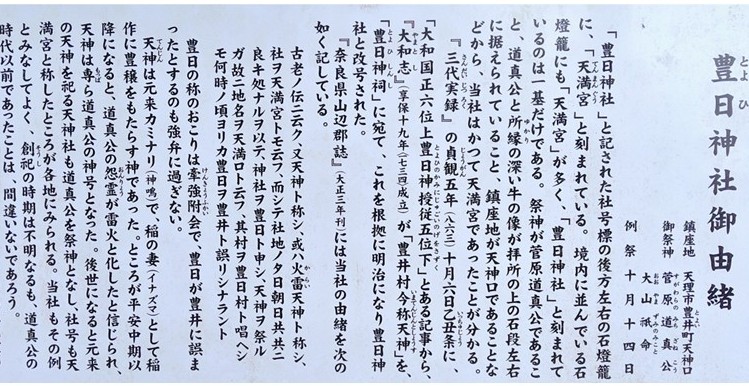 豊日神社御由緒
とよひ
鎮座地 天理市豊井町天神口
とよい
御祭神 菅原道真公
すがわらのみちざねこう
大山祇命
おおやまずみのみこと
例祭 十月十四日
「豊日神社」と記された社号標の後方左右の石燈籠
に、「天満宮」と刻まれている。境内に並んでいる石
てんまんぐう
燈籠にも「天満宮」が多く、「豊日神社」と刻まれて
いるのは一基だけである。祭神が菅原道真公であるこ
と、道真公と所縁の深い牛の像が拝所の上の石段左右
ゆかり
に据えられていること、鎮座地が天神口であることな
どから、当社はかつて天満宮であったことが分かる。
『三代実録』の貞観五年(八六三)十月六日乙丑条に、
さんだいじつろく じょうがん
「大和国正六位上豊日神授従五位下」とある記事から、
『大和志』(享保十九年(七三四)成立)が「豊井村今称天神」を、
やまとし
「豊日神祠」に宛て、これを根拠に明治になり豊日神
とよひしんし
社と改号された。
『奈良県山辺郡誌』(大正三年刊)には当社の由緒を次の
如く記している。
古老ノ伝ニ云ク、又天神ト称シ、或ハ火雷天神ト称シ、
社ヲ天満宮トモ云フ、而シテ社地ノタ日朝日共ニ
良キ処ナルヲ以テ、神社ヲ豊日ト申シ、天神ヲ祭ル
ガ故ニ地名ヲ天満ロト云フ、其村ヲ豊日村ト唱ヘシ
モ何時ノ頃ヨリカ豊日ヲ豊井ト誤リシナラント
豊日の称のおこりは牽強附会で、豊日が豊井に誤ま
ったとするのも強弁に過ぎない。
天神は元来カミナリ(神鳴)で、稲の妻(イナズマ)として稲
てんじん
作に豊穣をもたらす神であった。ところが平安中期以
降になると、道真公の怨霊が雷火と化したと信じられ、
おんりょう
天神は専ら道真公の神号となった。後世になると元来
の天神を祀る天神社も道真公を祭神となし、社号も天
満宮と称したところが各地にみられる。当社もその例
とみなしてよく、創祀の時期は不明なるも、道真公の
そうし
時代以前であったことは、間違いないであろう。